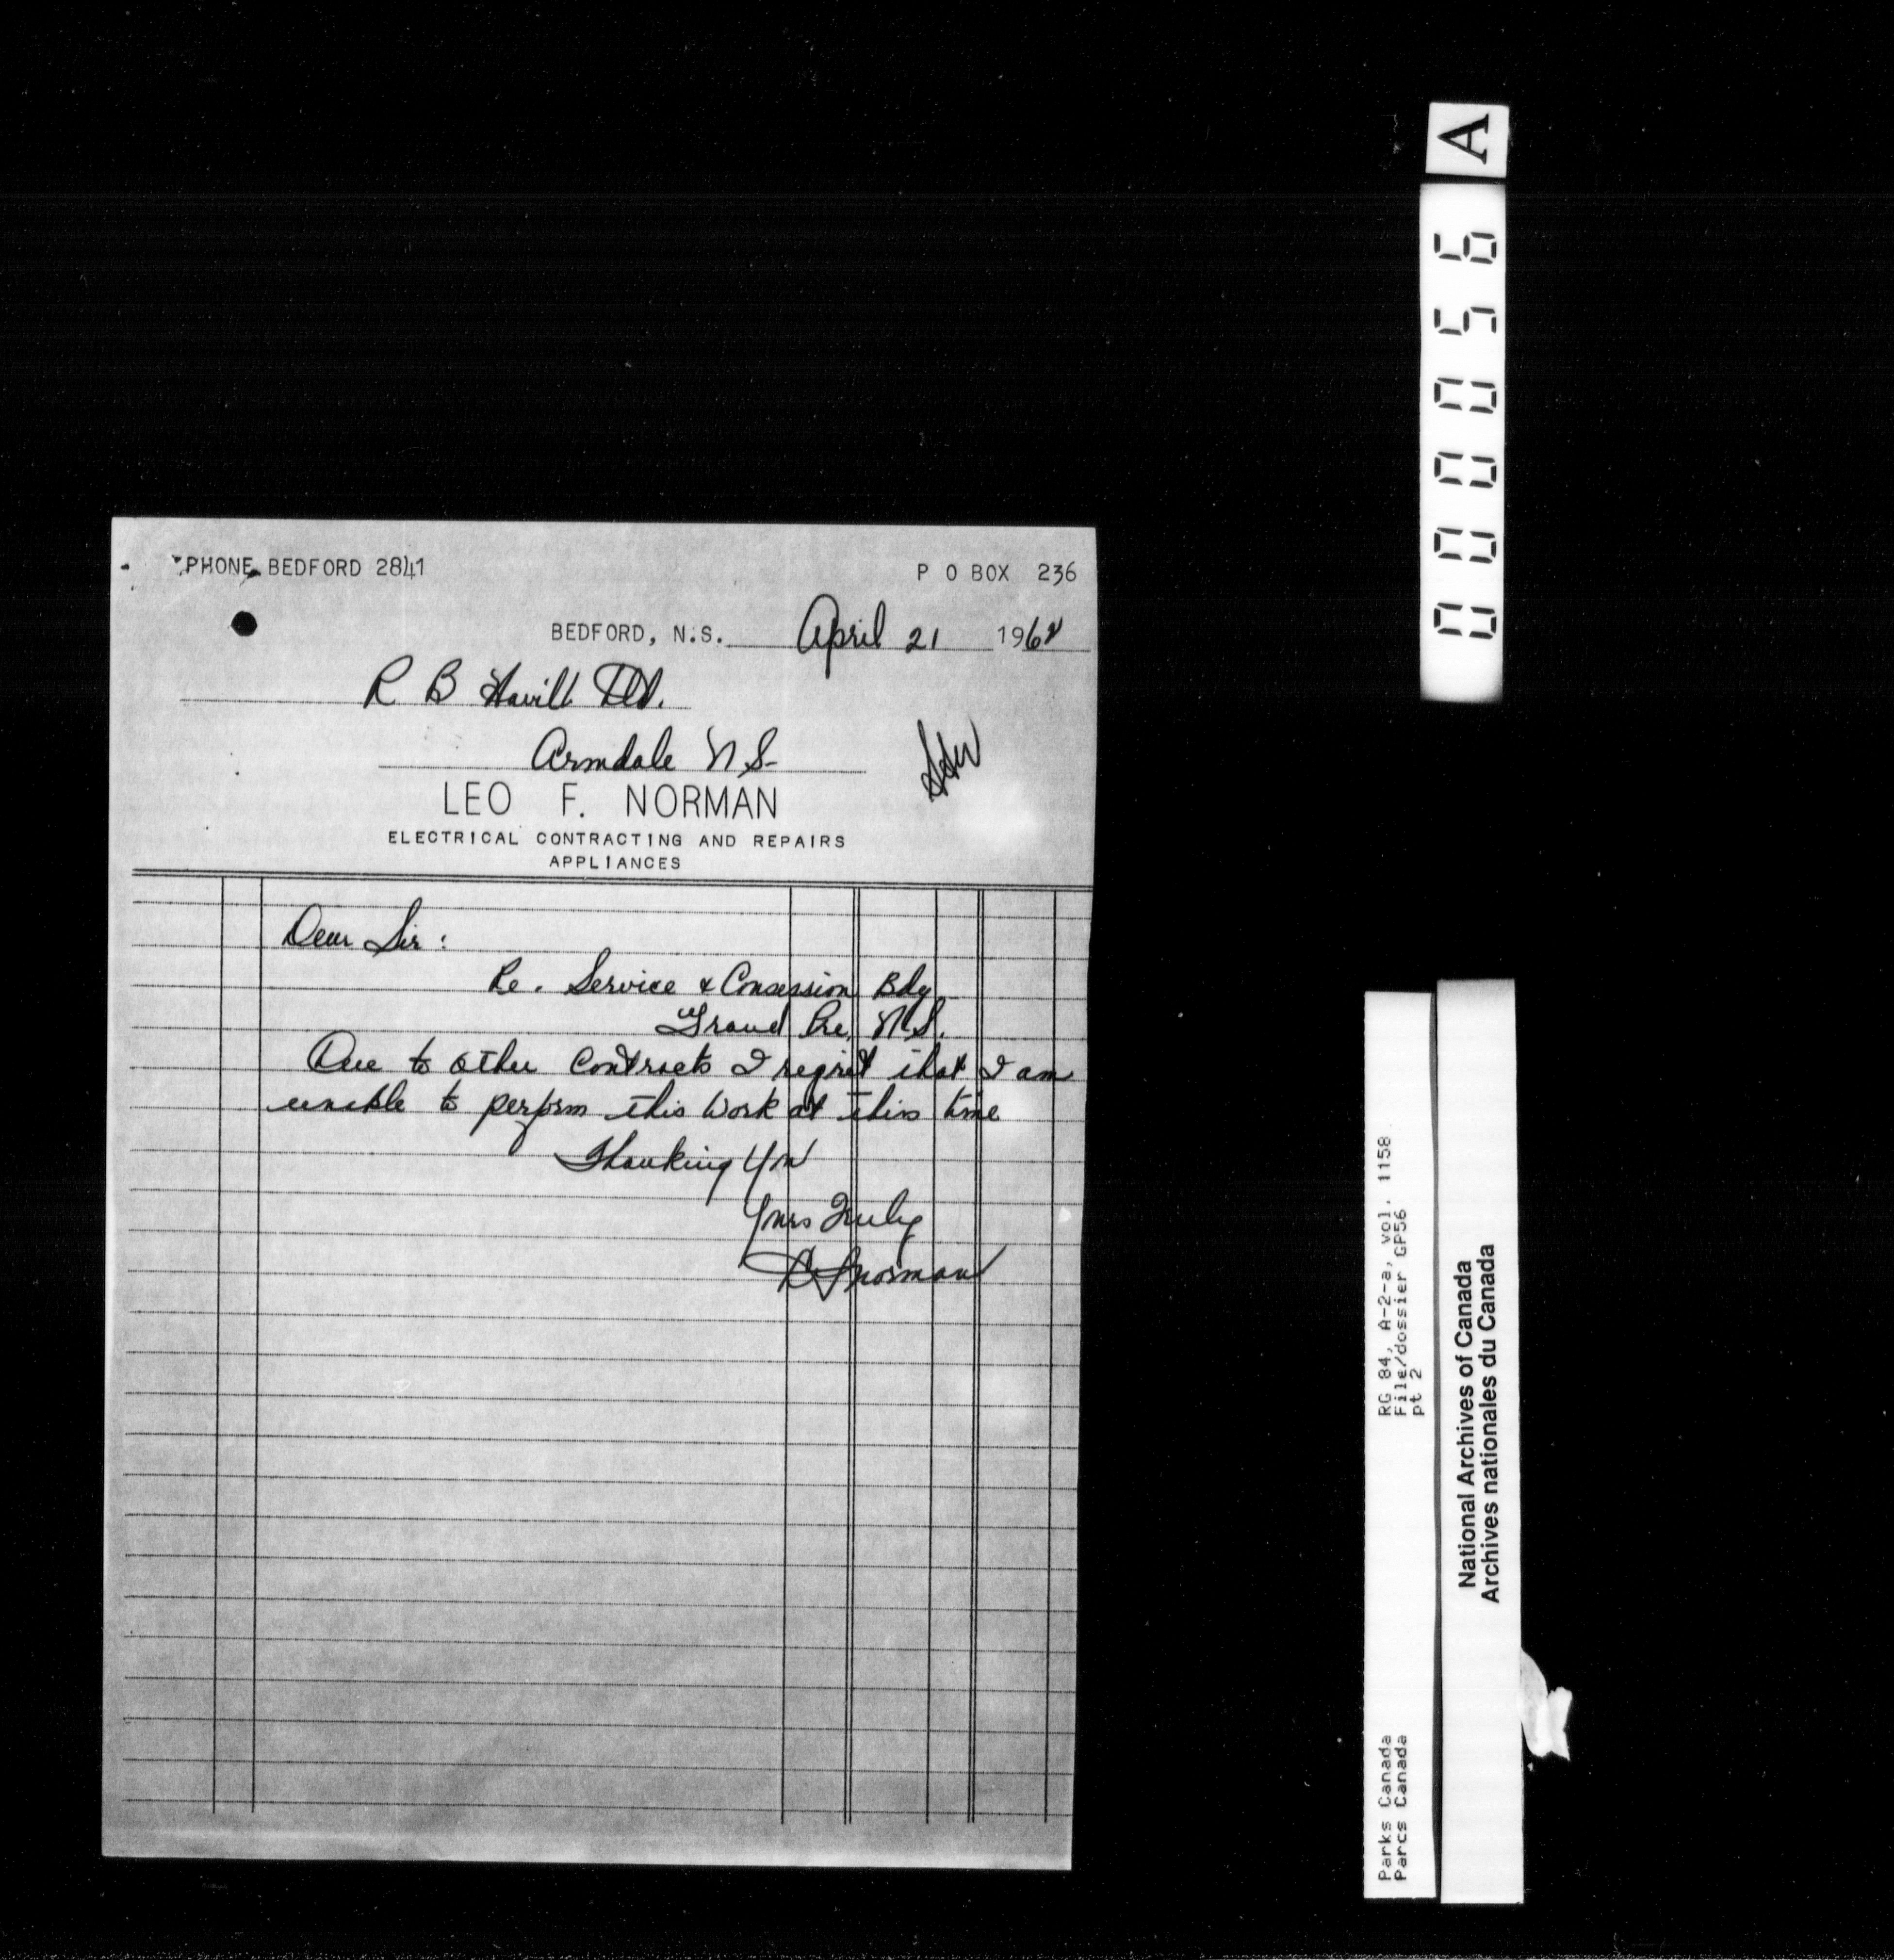 PHONE BEDFORD 2841
P O BOX 236
BEDFORD, N.S. April 21 1962
R B Havill Ltd.
Armdale N S-
LEO F. NORMAN
ELECTRICAL CONTRACTING AND REPAIRS
APPLIANCES
Dear Sir :
Re. Service & Consession Bdg
Grand Pre, N.S.
Due to other Contracts I regret that I am
unable to perform this Work at this time
Thanking You
Yours Truly
L F Norman
A
000056
RG 84, A-2-a, vol. 1158
File/dossier GP56
pt 2
Parks Canada
Parcs Canada
National Archives of Canada
Archives nationales du Canada